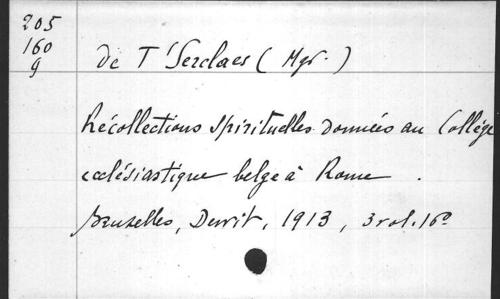 205
160
9
de T'Serclaes ( Mgr. )
Récollections spirituelles données au Collège
ecclésiastique belge à Rome .
Bruxelles, Dewit, 1913, 3 vol. 16°